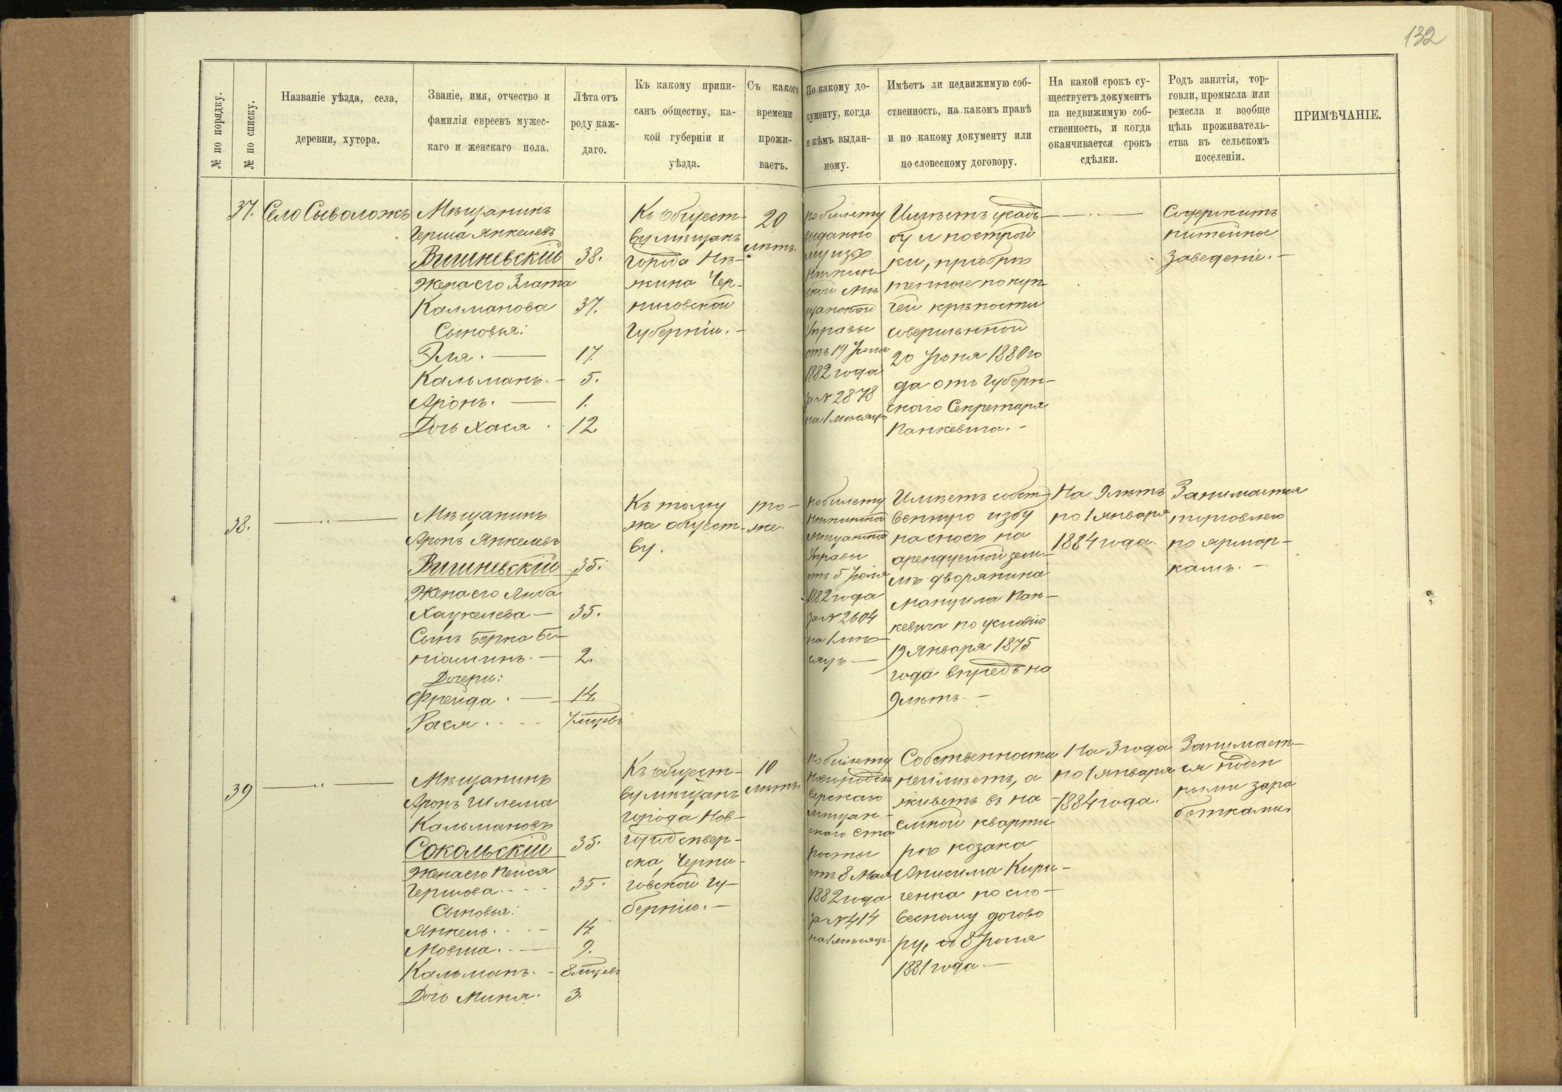 132
№ по порядку.
№ по списку.
Названіе уѣзда, села,
деревни, хутора.
Званіе, имя, отчество и
фамилія евреевъ мужес-
каго и женскаго пола.
Лѣта отъ
роду каж-
даго.
Къ какому припи-
санъ обществу, ка-
кой губерніи и
уѣзда.
Съ какого
времени
прожи-
ваетъ.
По какому до-
кументу, когда
и кѣмъ выдан-
ному.
Имѣетъ ли недвижимую соб-
ственность, на какомъ правѣ
и по какому документу или
по словесному договору.
На какой срокъ су-
ществуетъ документъ
на недвижимую соб-
ственность, и когда
оканчивается срокъ
сдѣлки.
Родъ занятія, тор-
говли, промысла или
ремесла и вообще
цѣль проживатель-
ства въ сельскомъ
поселеніи.
ПРИМѢЧАНІЕ.
37.
Село Сыволожъ
Мѣщанинъ
Герша Янкелевъ
Вишневскій 38.
Жена его Злата
Калманова 37.
Сыновья:
Эля. — 17.
Кальманъ. – 5.
Аронъ. — 1.
Дочь Хася. 12
Къ общест-
ву мѣщанъ
города Нѣ-
жина Чер-
ниговской
Губерніи. –
20
лѣтъ.
по билету
выданно
му изъ
Нѣжин-
ской Мѣ
щанской
Управы
отъ 19 Іюня
1882 года
за № 2878
на 1 мѣсяцъ
Имѣетъ усадь
бу и построй
ки, пріобрѣ
тенные по куп
чей крѣпости
совершенной
20 Іюня 1880 го
да отъ Губерн-
скаго Секретаря
Панкевича. –
— „ —
Содержитъ
питейное
заведеніе. –
38.
— „ —
Мѣщанинъ
Аронъ Янкелевъ
Вишневскій 35.
Жена его Люба
Хацкелева – 35.
Сынъ Берка Бе-
ніаминъ. – 2.
Дочери:
Фрейда. — 14
Рася. 7 мѣсяцевъ
Къ тому
же общест-
ву.
то-
же.
по билету
Нѣжинской
Мѣщанской
Управы
отъ 5 Іюля
1882 года
за № 2604
на 1 мѣ-
сяцъ —
Имѣетъ собст-
венную избу
на сносъ на
арендуемой зем-
лѣ дворянина
Мануила Пан-
кевича по условію
19 Января 1875
года впредь на
9 лѣтъ. –
На 9 лѣтъ
по 1 января
1884 года.
Занимается
торговлею
по ярмар-
камъ. –
39
— „ —
Мѣщанинъ
Аронъ Шлема
Кальмановъ
Сокольскій 35.
Жена его Пейся
Гершова. 35.
Сыновья:
Янкель. – 14
Мовша. — 9.
Кальманъ. – 8 мѣсяцевъ
Дочь Миня. 3.
Къ общест-
ву мѣщанъ
города Нов-
городсѣвер-
ска, Черни-
говской Гу-
берніи. –
10
лѣтъ.
по билету
Новгород
сѣверскаго
мѣщан-
скаго ста
росты
отъ 8 Мая
1882 года
за № 414
на 1 мѣсяцъ
Собственности
неимѣетъ, а
живетъ въ на
емной кварти
рѣ козака
Анисима Кири-
ченка по сло-
весному догово
ру, съ 8 Іюля
1881 года. –
На 3 года
по 1 января
1884 года.
Занимает-
ся поден
ными зара
ботками